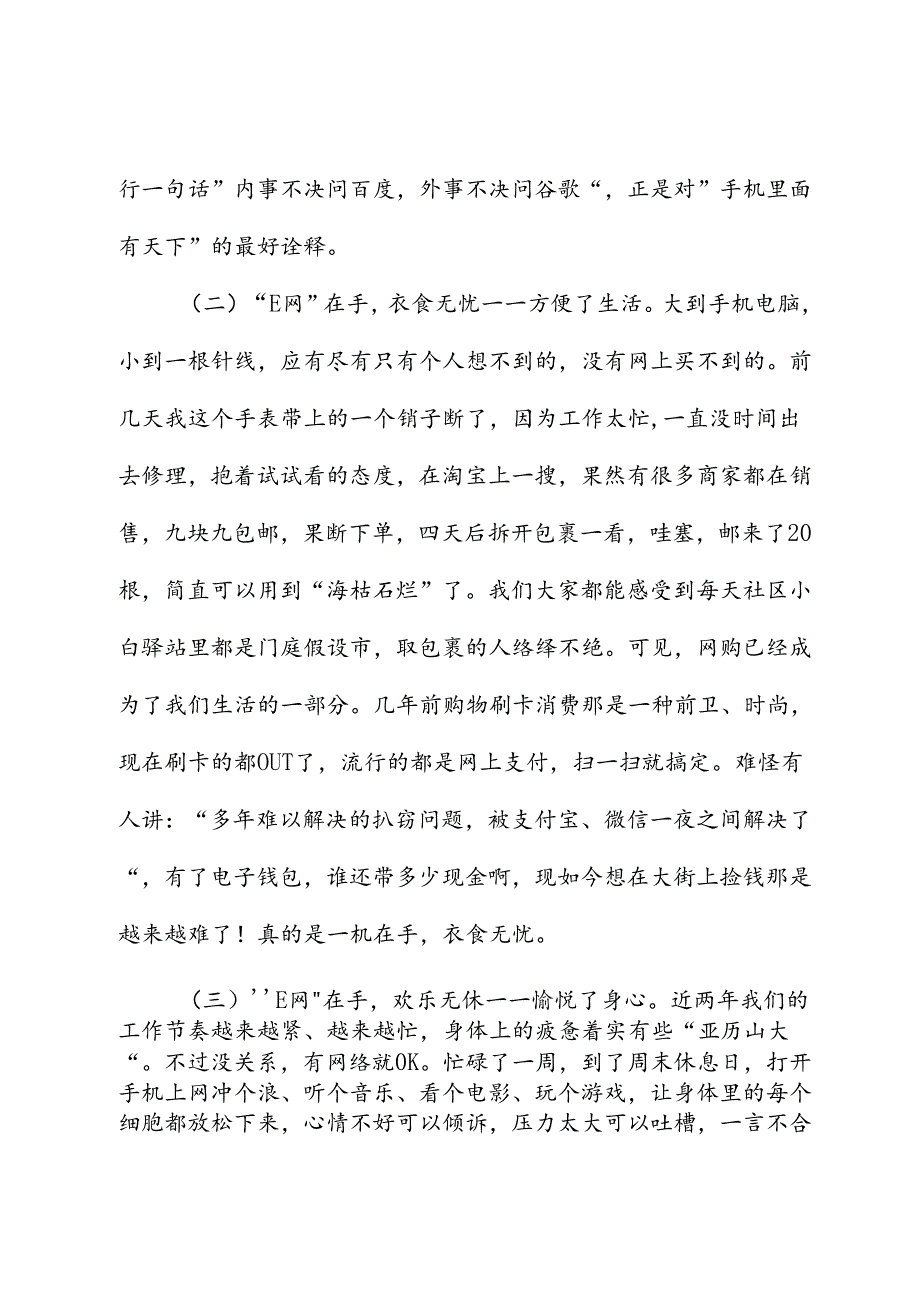 行一句话”内事不决问百度，外事不决问谷歌“，正是对”手机里面
有天下”的最好诠释。
（二）“E网”在手，衣食无忧一一方便了生活。大到手机电脑，
小到一根针线，应有尽有只有个人想不到的，没有网上买不到的。前
几天我这个手表带上的一个销子断了，因为工作太忙,一直没时间出
去修理，抱着试试看的态度，在淘宝上一搜，果然有很多商家都在销
售，九块九包邮，果断下单，四天后拆开包裹一看，哇塞，邮来了20
根，简直可以用到“海枯石烂”了。我们大家都能感受到每天社区小
白驿站里都是门庭假设市，取包裹的人络绎不绝。可见，网购已经成
为了我们生活的一部分。几年前购物刷卡消费那是一种前卫、时尚，
现在刷卡的都OUT了，流行的都是网上支付，扫一扫就搞定。难怪有
人讲：“多年难以解决的扒窃问题，被支付宝、微信一夜之间解决了
“，有了电子钱包，谁还带多少现金啊，现如今想在大街上捡钱那是
越来越难了！真的是一机在手，衣食无忧。
（三）''E网"在手，欢乐无休一一愉悦了身心。近两年我们的
工作节奏越来越紧、越来越忙，身体上的疲惫着实有些“亚历山大
“。不过没关系，有网络就OK。忙碌了一周，到了周末休息日，打开
手机上网冲个浪、听个音乐、看个电影、玩个游戏，让身体里的每个
细胞都放松下来，心情不好可以倾诉，压力太大可以吐槽，一言不合